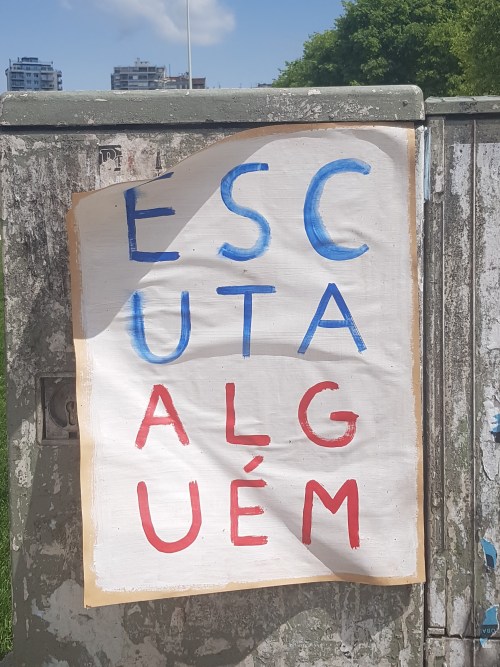 ESC
UTA
ALG
UÉM